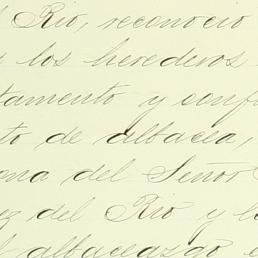 l Rio, reconoció
a los herederos
tamento y conf
to de albacea,
ona del Señor
ez del Rio y l
l albaceazgo e